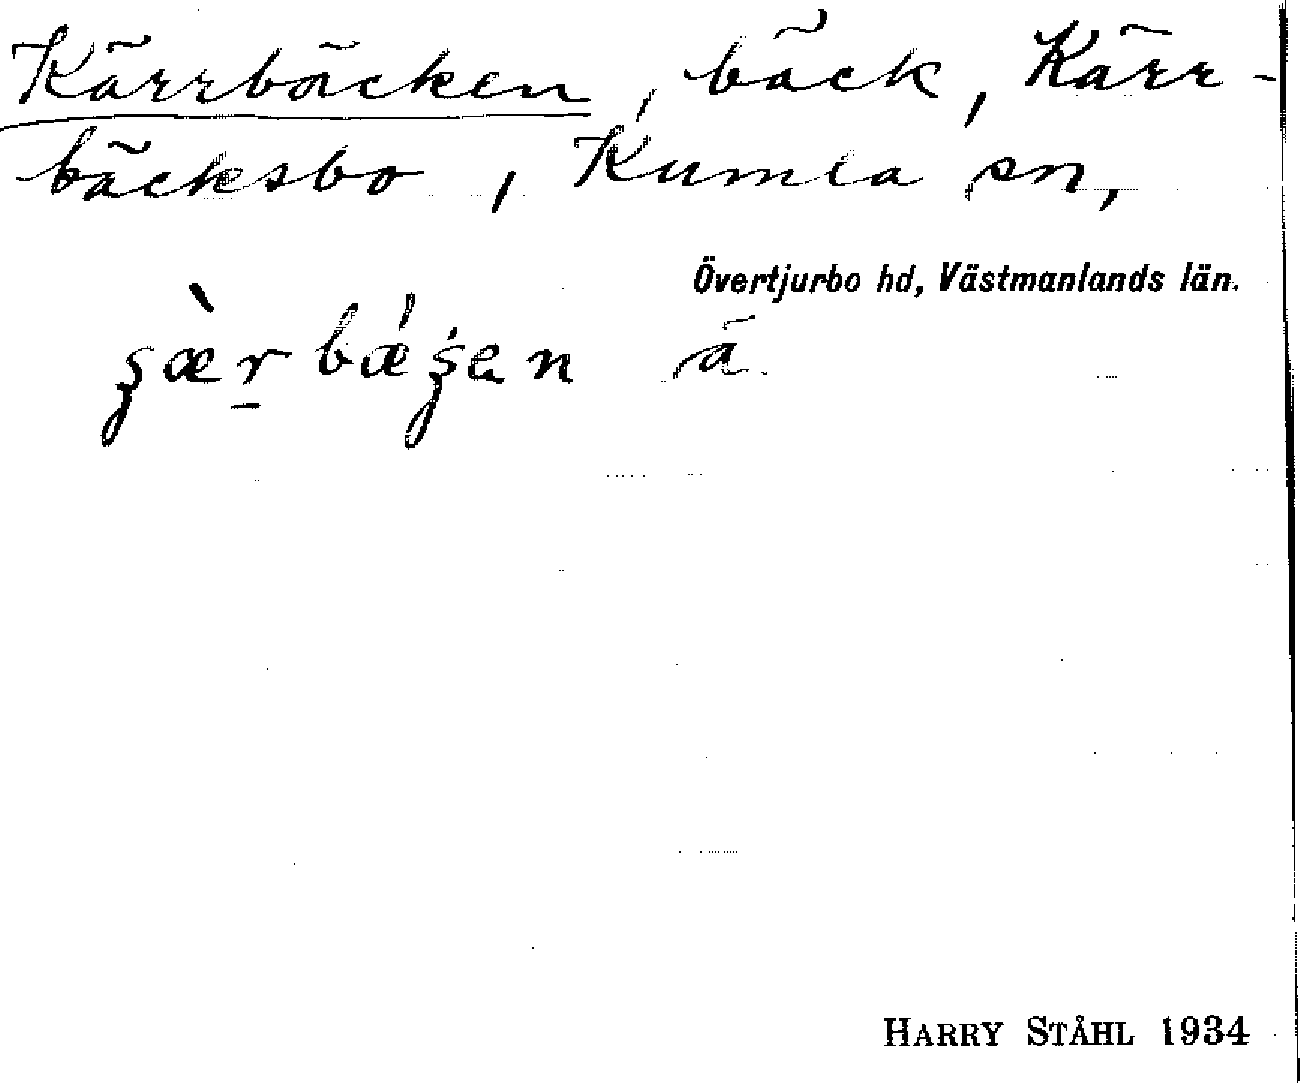 Kärrbäcken, bäck, Kärr-
bäcksbo, Kumla sn,
Övertjurbo hd, Västmanlands län.
ä
HARRY STÅHL 1934